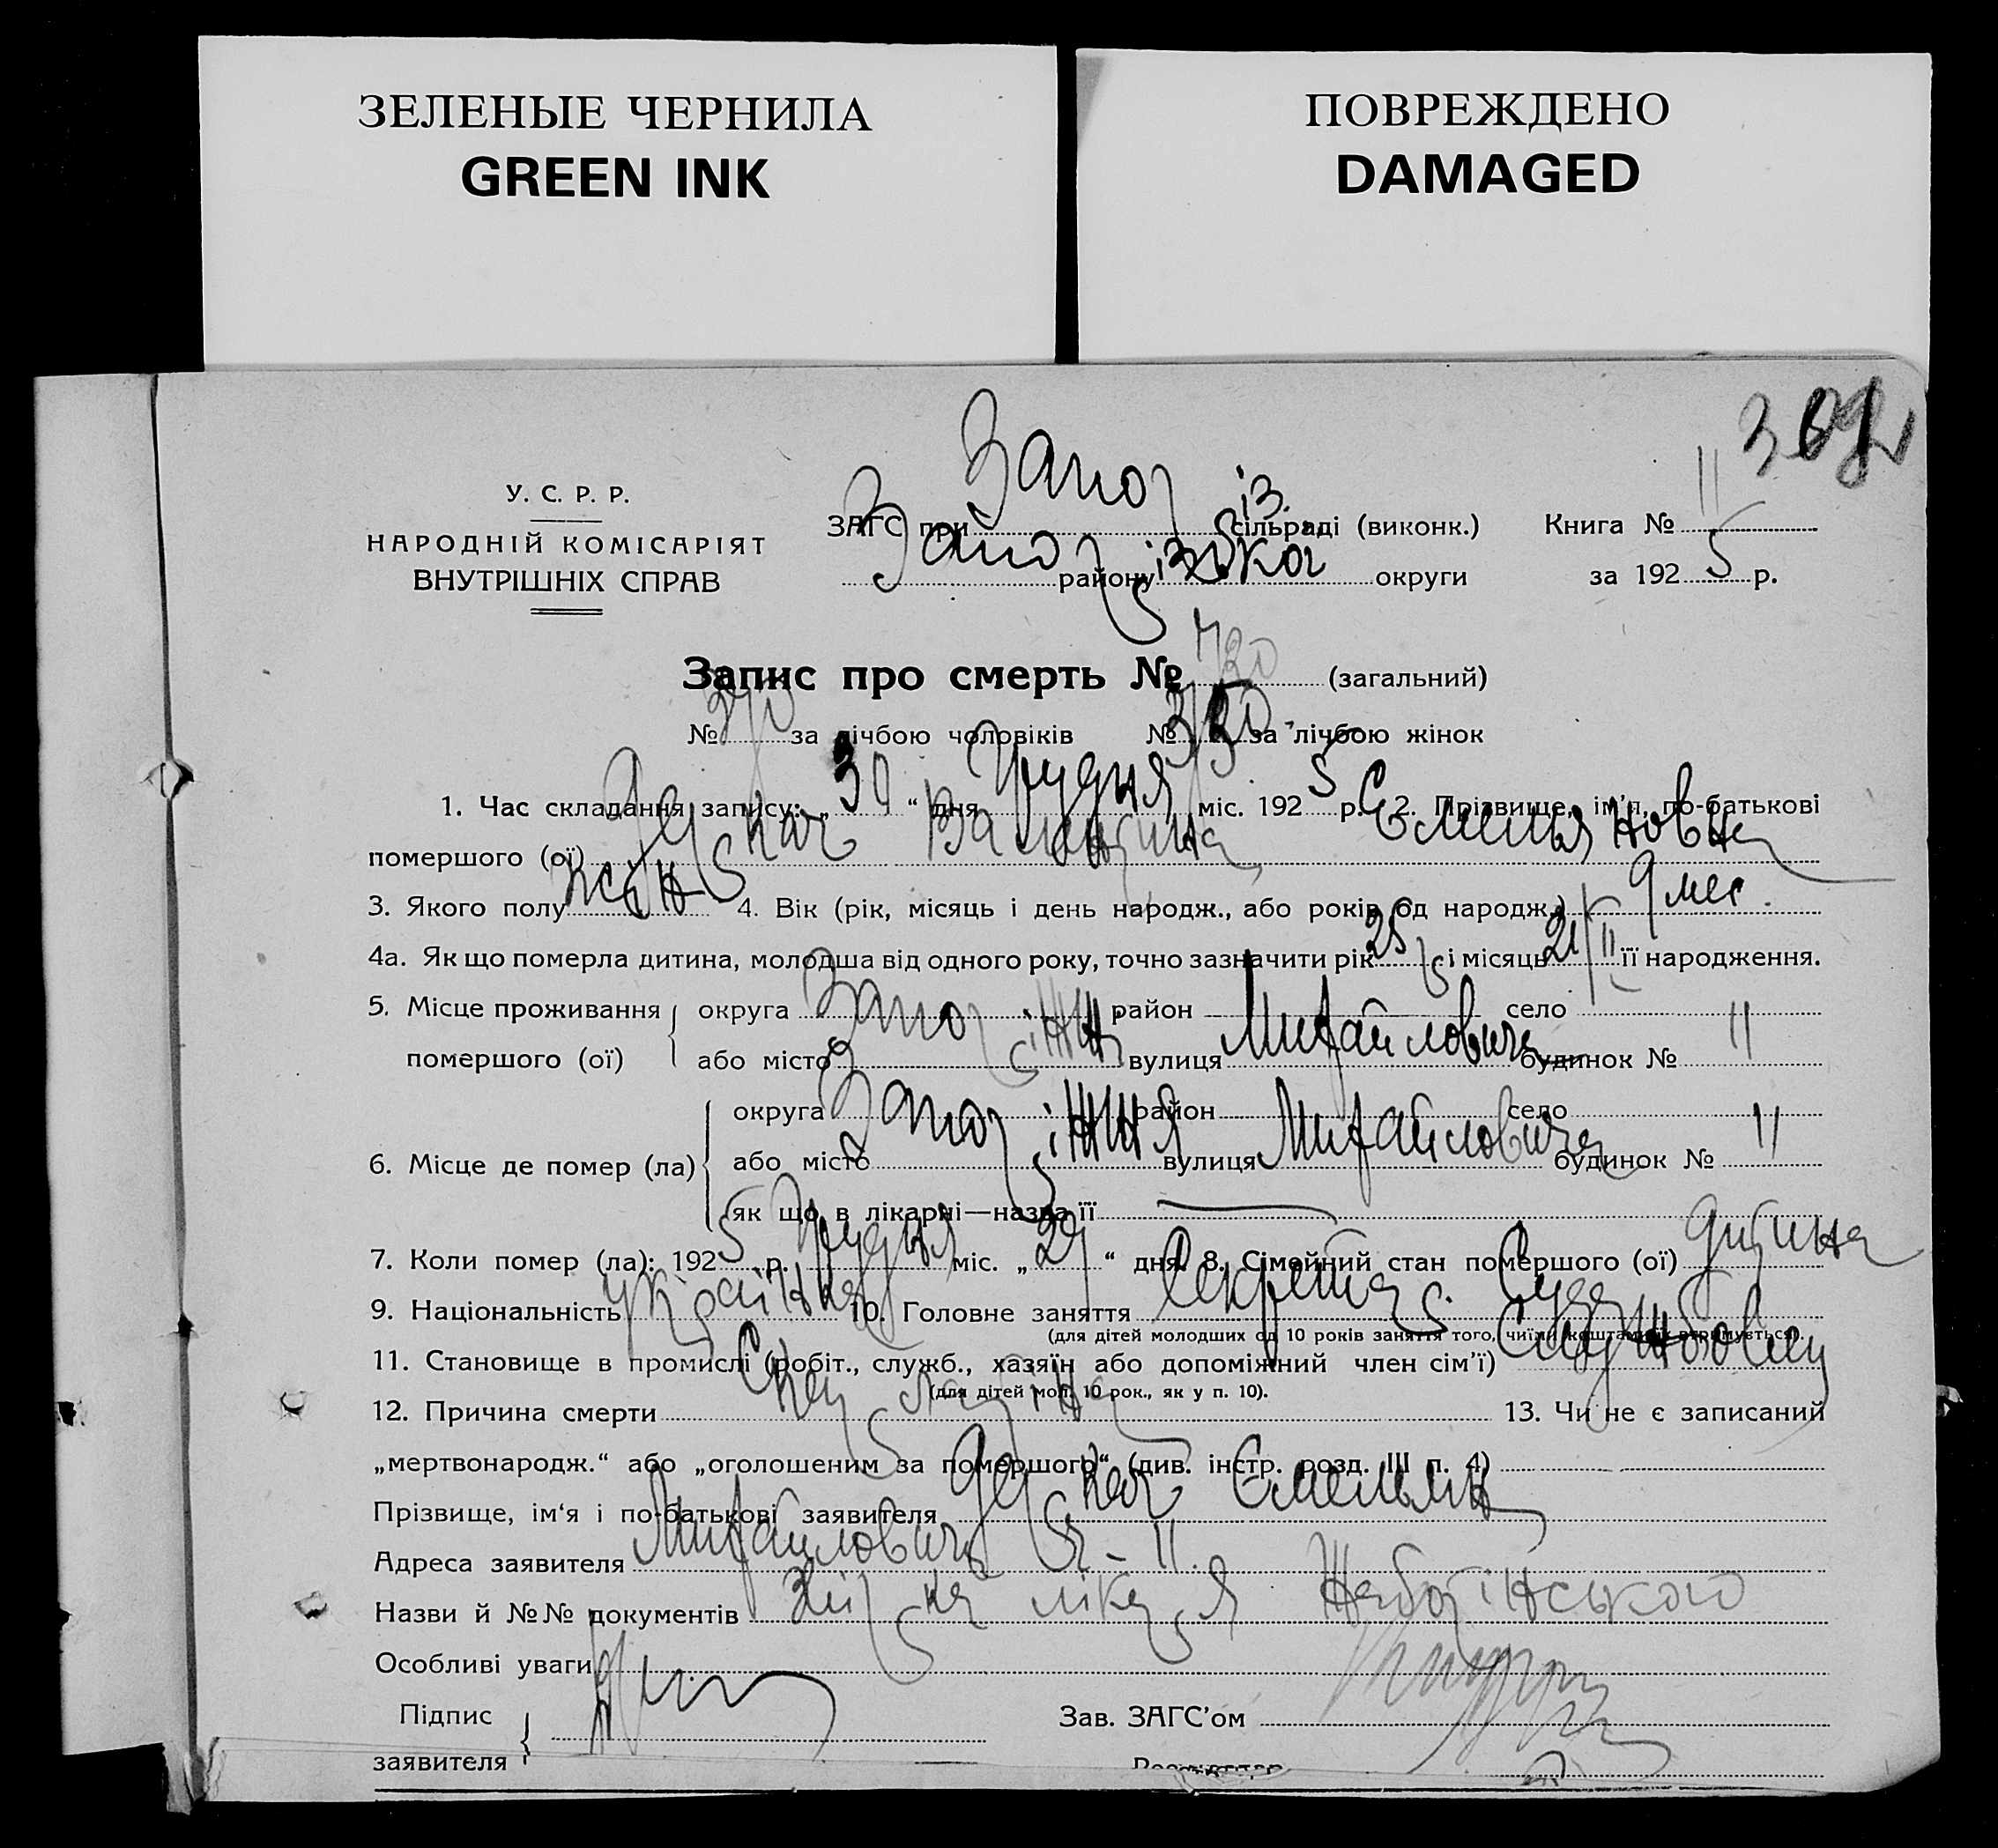 ЗЕЛЕНЫЕ ЧЕРНИЛА
GREEN INK
ПОВРЕЖДЕНО
DAMAGED
У. С. Р. Р.
НАРОДНІЙ КОМІСАРІЯТ
ВНУТРІШНІХ СПРАВ
ЗАГС при Запоріз. сільраді (виконк.) Книга № II
Запорізька району округи за 1925 р.
Запис про смерть № (загальний)
№ за лічбою чоловіків № за лічбою жінок
1. Час складання запису: „30“ дня Грудня міс. 1925 р. 2. Прізвище, ім'я, по-батькові
помершого (ої) Валентина Емельяновна
3. Якого полу жін 4. Вік (рік, місяць і день народж., або років од народж.) 9 мес.
4а. Як що померла дитина, молодша від одного року, точно зазначити рік 25 і місяць її народження.
5. Місце проживання помершого (ої) округа район село
або місто Запоріжжя вулиця Михайловича будинок № 11
6. Місце де помер (ла) округа район село
або місто Запоріжжя вулиця Михайловича будинок № 11
як що в лікарні—назва її —
7. Коли помер (ла): 1925 р. Грудня міс. „29“ дня. 8. Сімейний стан помершого (ої) дитина
9. Національність українка 10. Головне заняття Секретар Суду
(для дітей молодших од 10 років заняття того, чиїм коштам їх втримується).
11. Становище в промислі (робіт., служб., хазяїн або допоміжний член сім'ї) Службовець
(для дітей мол. 10 рок., як у п. 10).
12. Причина смерти Скарлатіна 13. Чи не є записаний
„мертвонародж.“ або „оголошеним за помершого“ (див. інстр. розд. III п. 4) —
Прізвище, ім'я і по-батькові заявителя Емельян
Адреса заявителя Михайловича 11.
Назви й №№ документів лікаря
Особливі уваги
Підпис заявителя Зав. ЗАГС'ом